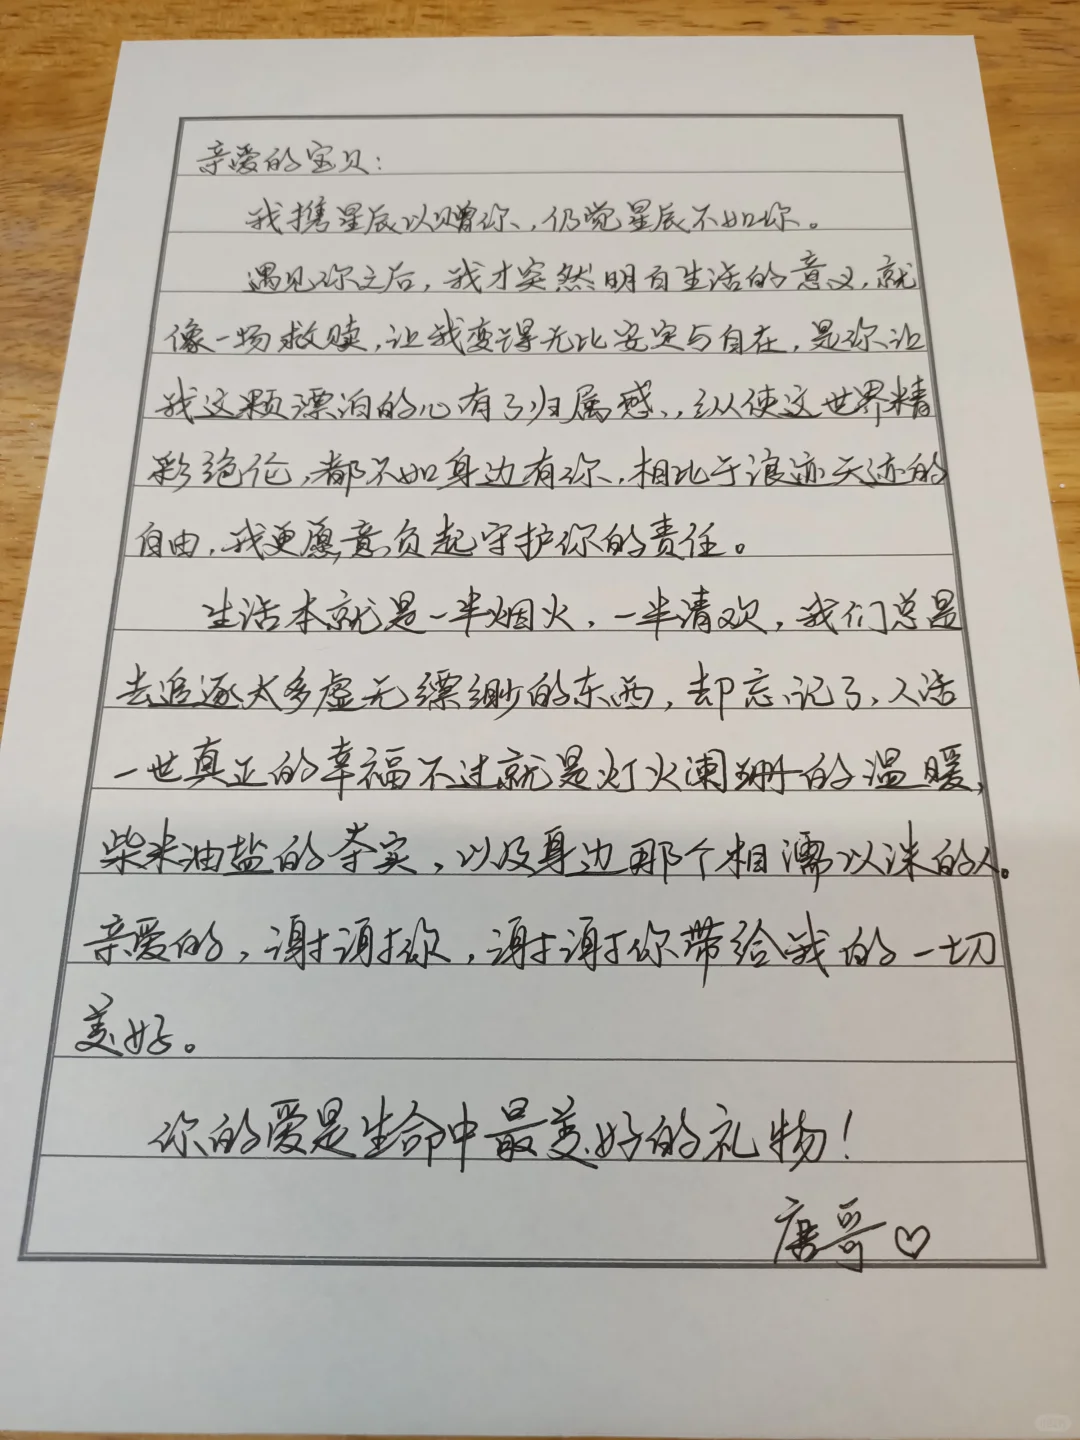 亲爱的宝贝:
我携星辰以赠你,仍觉星辰不如你。
遇见你之后,我才突然明白生活的意义,就
像一场救赎,让我变得无比安定与自在,是你让
我这颗漂泊的心有了归属感,纵使这世界精
彩绝伦,都不如身边有你,相比于浪迹天迹的
自由,我更愿意负起守护你的责任。
生活本就是一半烟火,一半清欢,我们总是
去追逐太多虚无缥缈的东西,却忘记了,人活
一世真正的幸福不过就是灯火阑珊的温暖,
柴米油盐的实,以及身边那个相濡以沫的人。
亲爱的,谢谢你,谢谢你带给我的一切
美好。
你的爱是生命中最美好的礼物!
唐哥♡